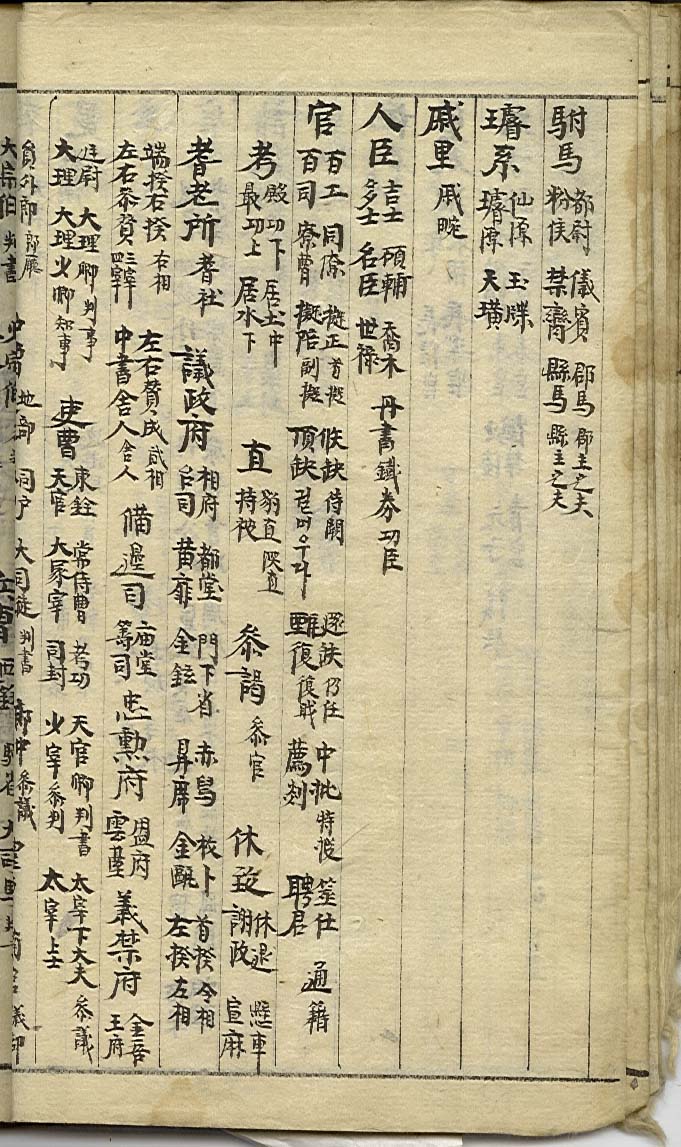 駙馬 都尉 粉侯 儀賓 禁臠 郡馬 郡主之夫 縣馬 縣主之夫
璿系 仙源 璿源 玉牒 天璜
戚里 戚畹
人臣 吉士 多士 碩輔 名臣 喬木 世祿 丹書鐵券 功臣
官 百工 百司 同僚 寮曹 擬正 首擬 擬陪 副擬 作缺 待闕 頂缺 遞缺 仍任 復 復職 中批 特授 薦剡 筮仕 聘君 通籍
考 殿 功下 最 功上 居土中 居水下 直 豹直 持被 參謁 參官 休致 休退 謝政 懸車 宣麻
耆老所 耆社 議政府 相府 台司 都堂 黃扉 門下省 金鉉 赤舄 昇席 枚卜 金甌 首揆 令相 左揆 左相
端揆 右揆 右相 左右參贊 三宰 四宰 左右贊成 貳相 中書舍人 舍人 備邊司 廟堂 籌司 忠勳府 盟府 雲臺 義禁府 金吾 王府
廷尉 大理 大理卿 判事 大理少卿 知事 吏曹 東銓 天官 常侍曹 大冢宰 考功 司封 天官卿 判書 少宰 參判 太宰下大夫 參議 太宰上士
員外郎 郎廳 大宗伯 判書 地部 司戶 大司徒 判書 郎中 參議